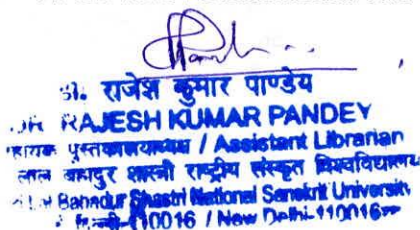 डॉ. राजेश कुमार पाण्डेय
DR RAJESH KUMAR PANDEY
सहायक पुस्तकालयाध्यक्ष / Assistant Librarian
लाल बहादुर शास्त्री राष्ट्रीय संस्कृत विश्वविद्यालय
Bahadur Shastri National Sanskrit University
110016 / New Delhi-110016